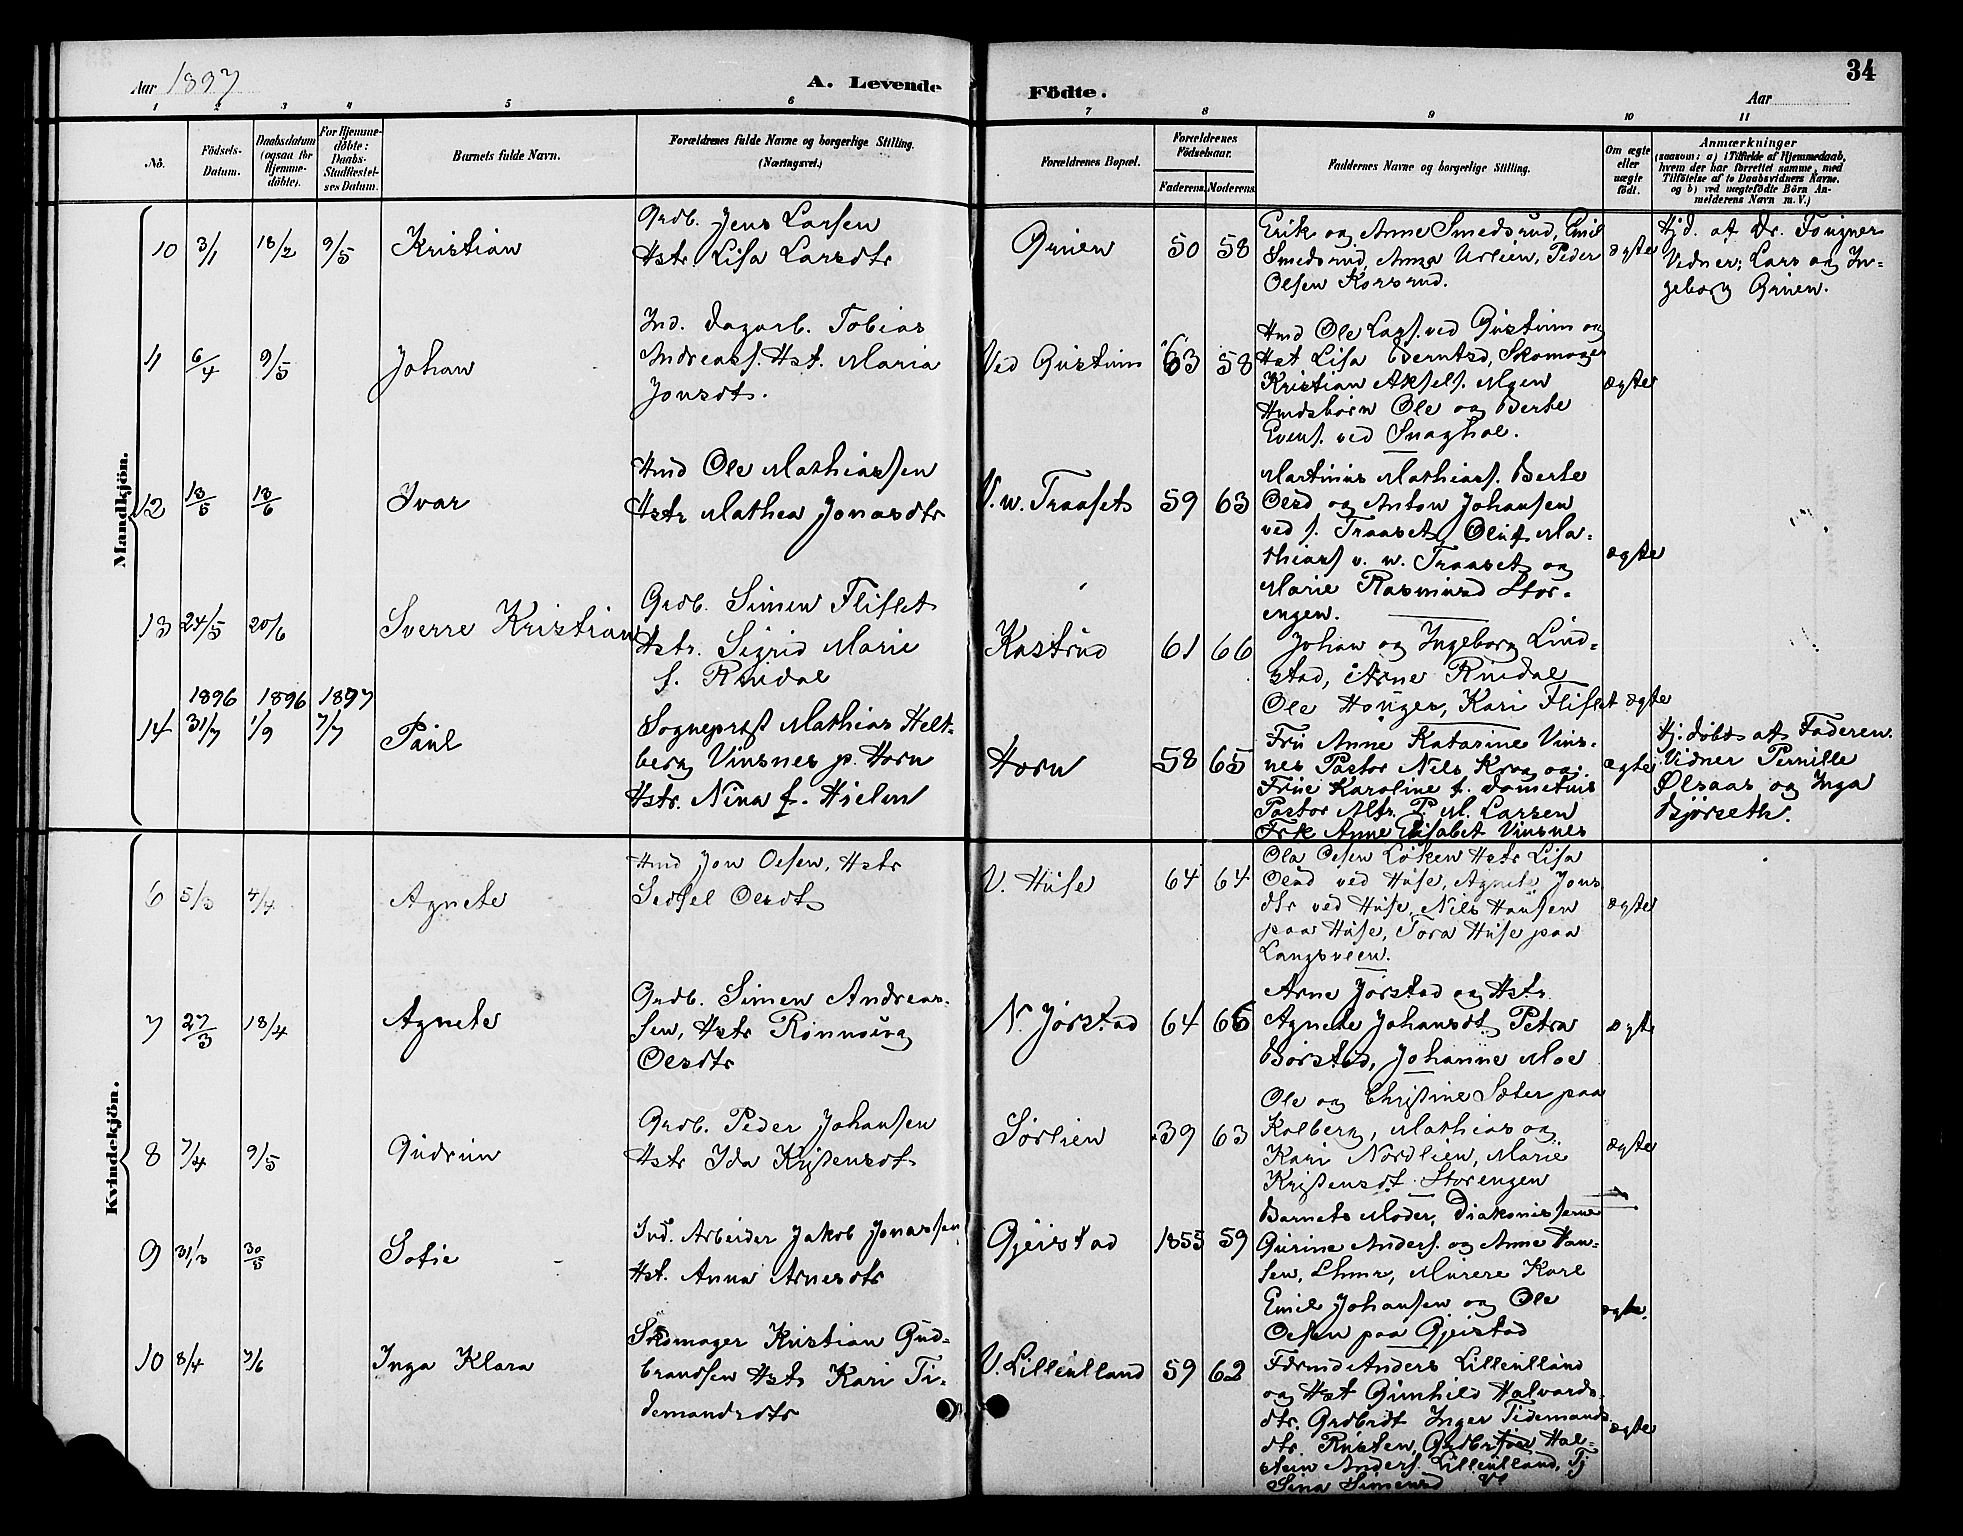 Aar 1897
A. Levende Födte.
Aar
34
1 2 3 4 5 6 7 8 9 10 11
No.
Födsels-Datum.
Daabsdatum (ogsaa for Hjemme-döbte).
For Hjemme-döbte: Daabs-Stadfestel-ses Datum.
Barnets fulde Navn.
Forældrenes fulde Navne og borgerlige Stilling. (Næringsvei.)
Forældrenes Bopæl.
Forældrenes Födselsaar.
Faderens. Moderens.
Faddernes Navne og borgerlige Stilling.
Om ægte eller uægte födt.
Anmærkninger
(saasom: a) i Tilfælde af Hjemmedaab,
hvem der har forrettet samme, med
Tilföielse af to Daabsvidners Navne,
og b) ved uægtefödte Börn An-
melderens Navn m. V.)
Mandkjön.
10 3/1 18/2 9/5 Kristian
Grdb. Jens Larsen
Hstr. Lisa Larsdtr
Gruen 50 58
Erik og Anne Smedsrud, Emil
Smedsrud, Anna Urlien, Peder
Olsen Korsrud.
ægte
Hjd. af Dr. Fougner
Vidner; Lars og In-
geborg Gruen.
11 6/4 9/5 Johan
Ind. Dagarb. Tobias
Andreass. Hst. Maria
Jonsdt.
Ved Gustum 63 58
Hmd Ole Lars. ved Gustum og
Hst Lisa Berntsd, Skomager
Kristian Aksels. Moen
Hmdsbörn Ole og Berte
Evens. ved Snaghol.
ægte
12 13/5 13/6 Ivar
Hmd Ole Mathiassen
Hstr Mathea Jonasdtr
V. w. Traaset 59 63
Martinus Mathiass. Berte
Olsd og Anton Johansen
ved s. Traaset, Oluf Ma-
thiass v. w. Traaset og
Marie Rasmusd Stor-
engen.
ægte
13 24/5 20/6 Sverre Kristian
Grdb. Simen Fliflet
Hstr. Sigrid Marie
f. Rindal
Kastrud 61 66
Johan og Ingeborg Lind-
stad, Arne Rindal
Ole Honger, Kari Fliflet
ægte
1896 1896 1897
14 31/7 1/9 7/7 Paul
Sogneprest Mathias Helt-
berg Vinsnes p. Horn
Hstr. Nina f. Hielm
Horn 58 65
Fru Anne Katarine Vins-
nes Pastor Nils Krog og
Frue Karoline f.
Pastor P. M. Larsen
Frk Anne Elisabet Vinsnes
ægte
Hj. döbt af Faderen.
Vidner Pernille
Ølsaas og Inga
Bjørseth.
Kvindekjön.
6 5/3 4/4 Agnete
Hmd Jon Olsen, Hstr
Sedsel Olsdt
V. Huse 64 64
Ola Olsen Løken Hstr Lisa
Olsd ved Huse, Agnete Jons
dtr ved Huse, Nils Hansen
paa Huse, Tora Huse paa
Langsveen.
ægte
7 27/3 18/4 Agnete
Grdb. Simen Andreas-
sen, Hstr Rønnaug
Olsdtr
N. Jørstad 64 66
Arne Jørstad og Hstr.
Agnete Johansdt, Petra
Børstad, Johanne Moe
ægte
8 7/4 9/5 Gudrun
Grdb. Peder Johansen
Hstr Ida Kristensdt
Sørlien 39 63
Ole og Christine Sæter paa
Kolberg, Mathias og
Kari Nordlien, Marie
Kristensdt Storengen
ægte
9 31/3 30/5 Sofie
Ind. Arbeider Jakob Jonassen
Hst. Anna Arnesdtr
Gjeistad 1855 59
Barnets Moder, Diakonisserne
Gurine Anders. og Anne Han-
sen, Murere Karl
Emil Johansen og Ole
Olsen paa Gjeistad
ægte.
10 8/4 7/6 Inga Klara
Skomager Kristian Gud-
brandsen Hstr Kari Ti-
demandsdtr
V. Lilleulland 59 62
Anders Lilleulland
og Hst Gunhild Halvards-
dtr. Inger Tidemands
dtr. Rusten, Hal-
stein Anders. Lilleulland, Tj
Sina Simensd
ægte